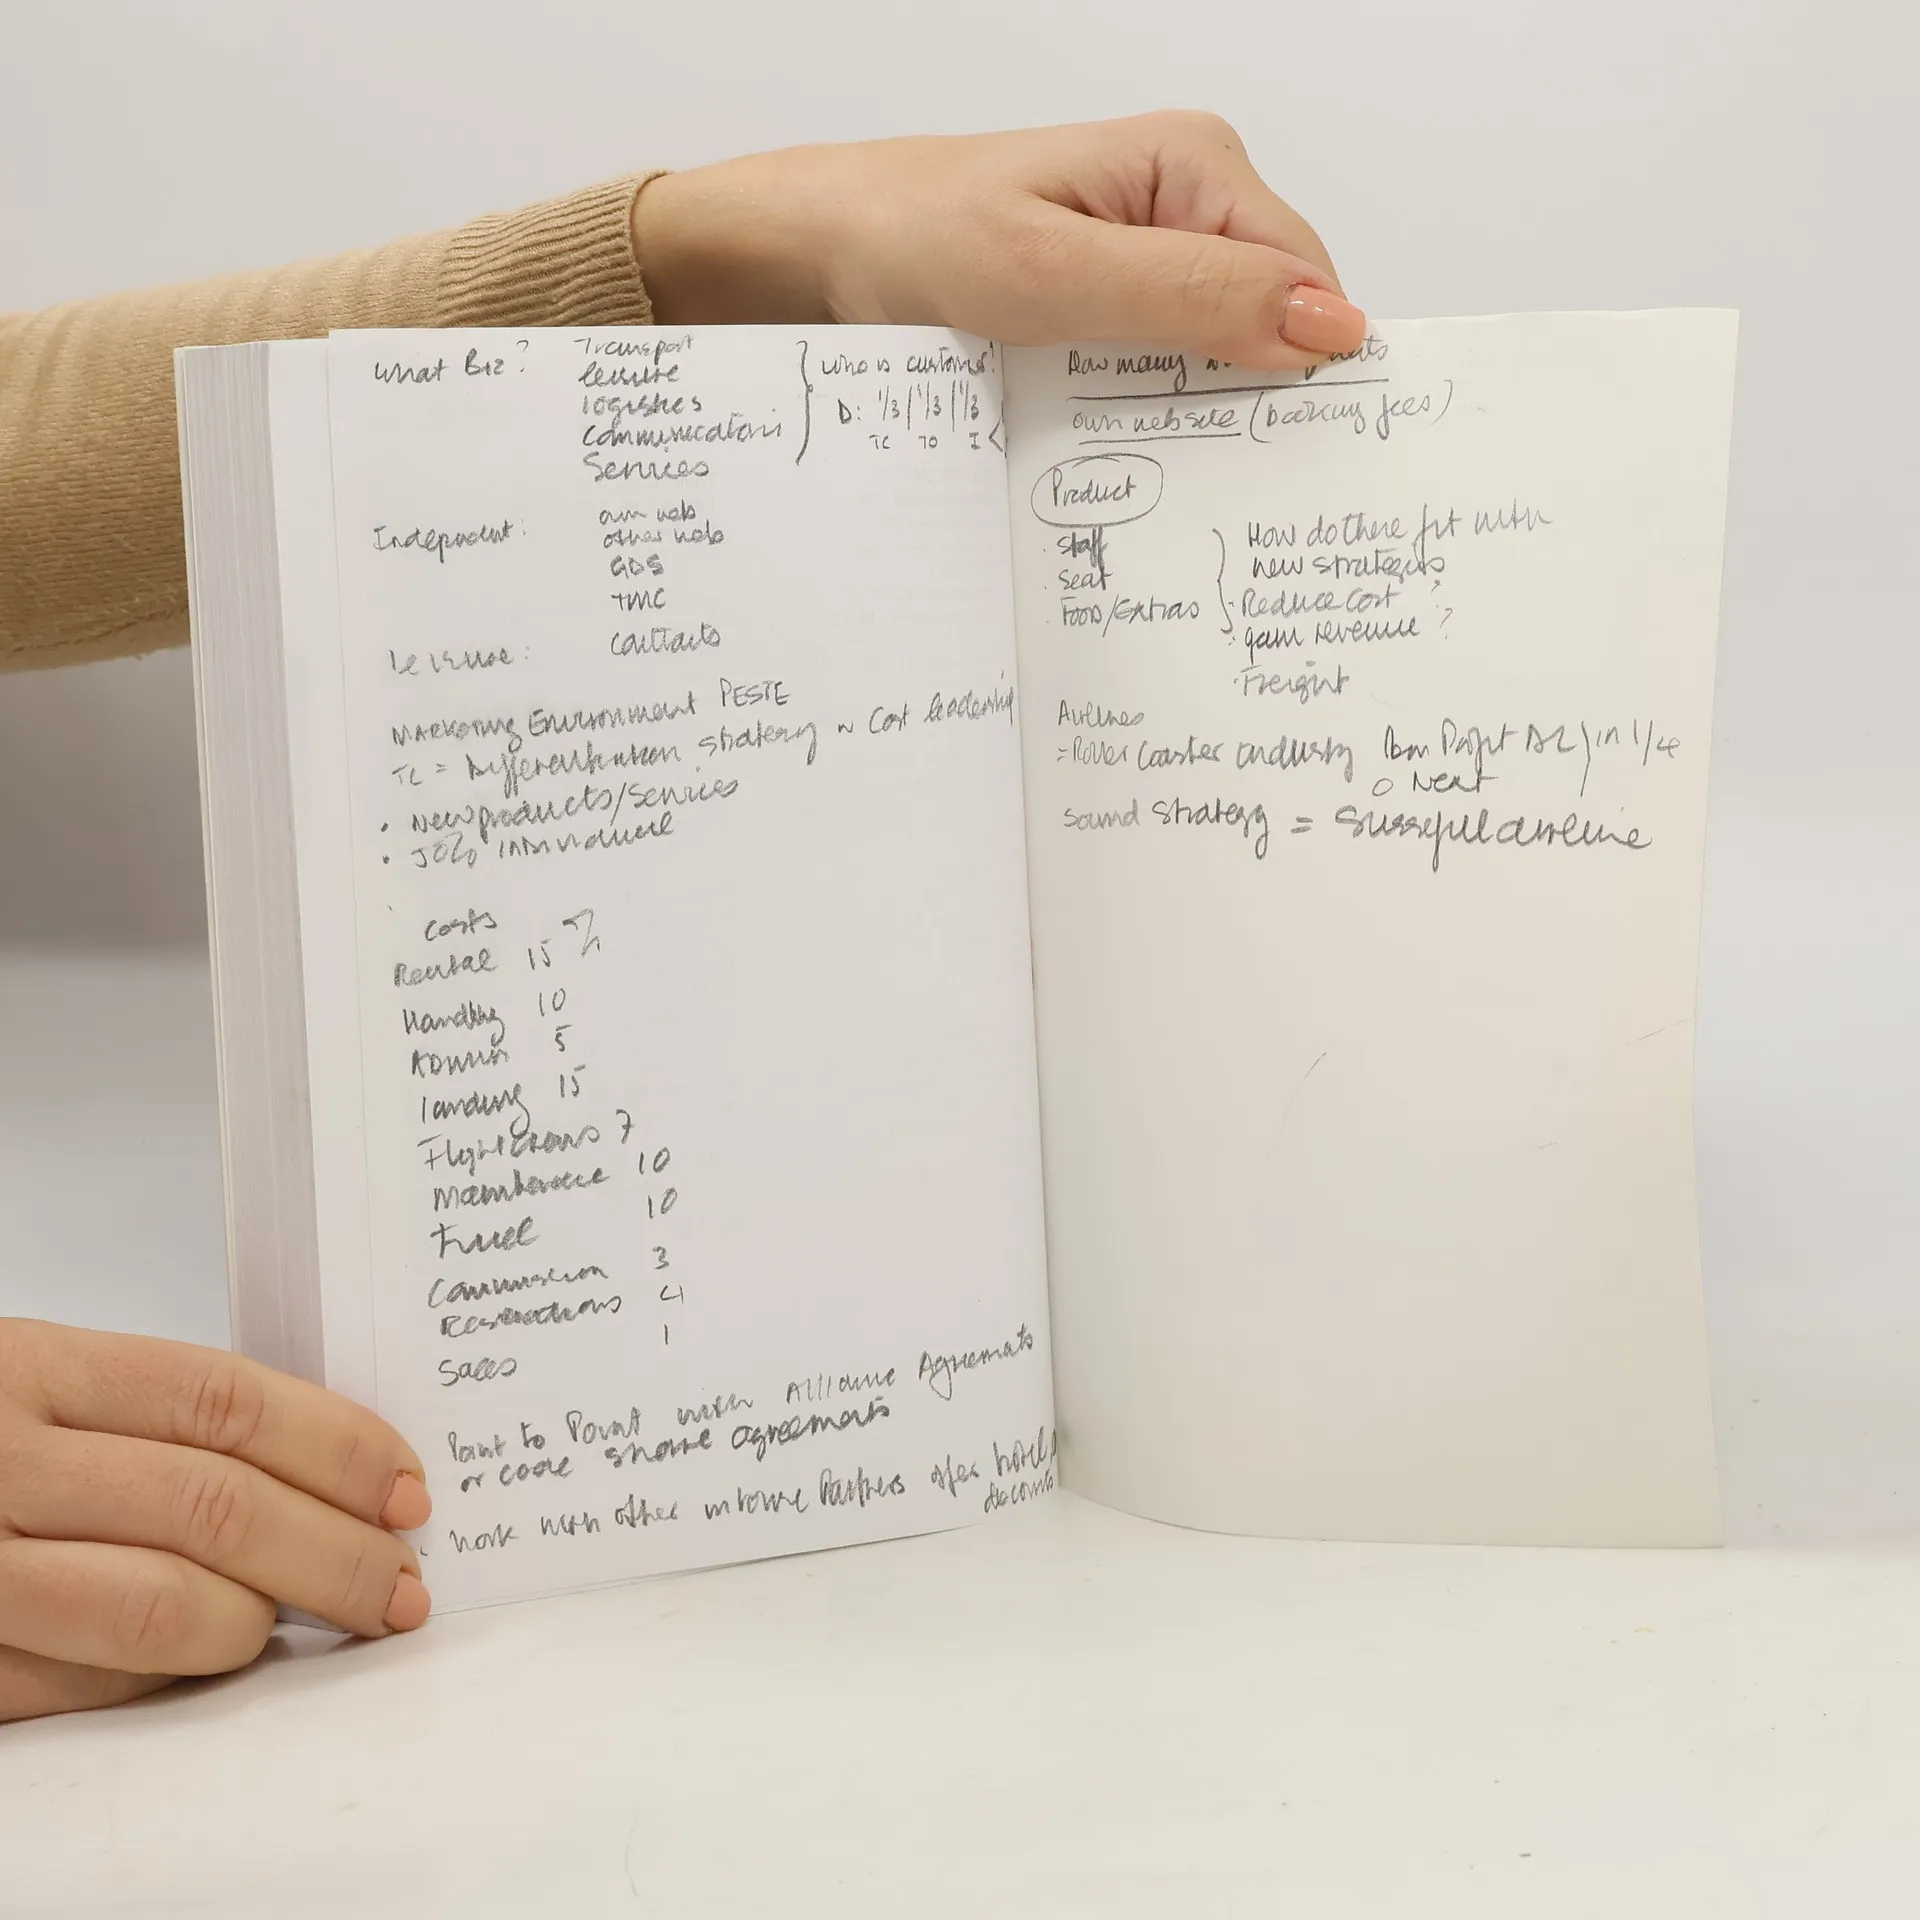 What Biz?
Transport
leisure
logistics
Communications
Services
Who is customer?
D: 1/3 / 1/3 / 1/3
TC TO I
Independent:
own web
other web
GDS
TMC
Leisure:
contracts
MARKETING Environment PESTE
TC = Differentiation strategy ~ Cost leadership
• New products/services
• individual
Costs
Rental 15 %
Handling 10
Admin 5
landing 15
Flight crews 7
Maintenance 10
Fuel 10
Commission 3
Reservations 4
Sales 1
Point to Point with Alliance Agreements
or code share agreements
work with other Partners offer hotel
discounts
How many
own website (booking fees)
Product
· Staff
· Seat
· Food/Extras
How do these fit with
new strategies
· Reduce Cost ?
· gain revenue ?
· Freight
Airlines
= Roller Coaster industry Profit in 1/4
0 Next
Sound Strategy = Sussefull airline